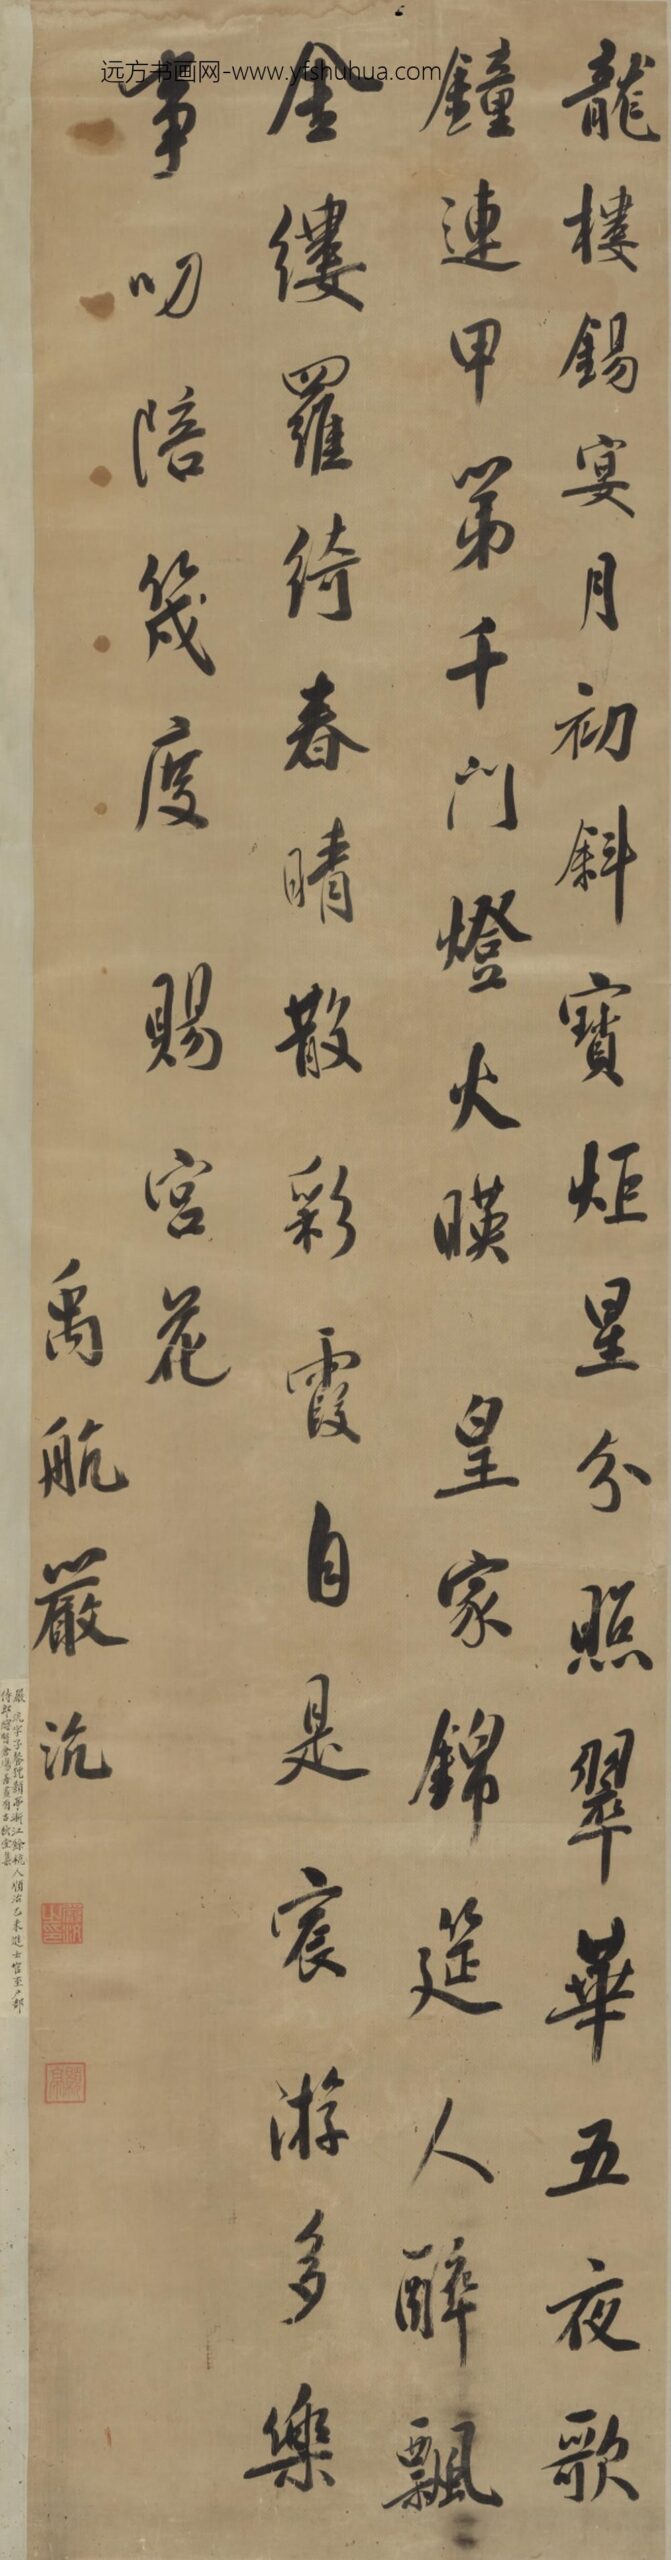 远方书画网-www.yfshuhua.com
龍樓錫宴月初斜寶炬星分照翠華五夜歌
鐘連甲第千門燈火暎皇家錦筵人醉飄
金縷羅綺春晴散彩霞自是宸游多樂
事叨陪幾度賜宮花
禹航嚴沆
嚴沆字子餐號顥亭浙江餘杭人順治乙未進士官至戶部
侍郎總督倉場善畫有古秋堂集